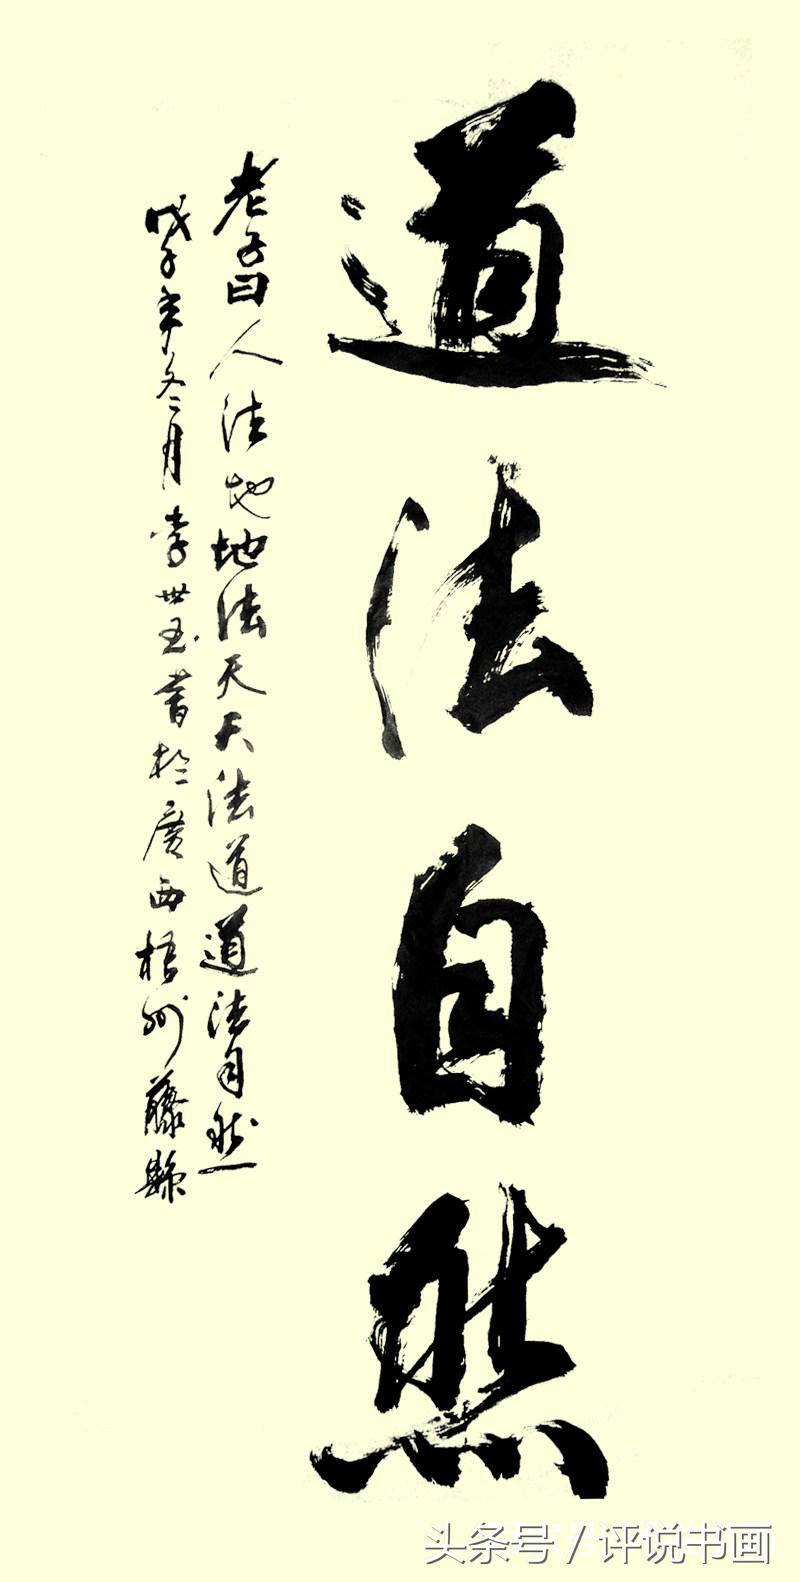 道法自然
老子曰人法地地法天天法道道法自然
戊子年冬月李世玉書於廣西梧州藤縣
头条号/评说书画